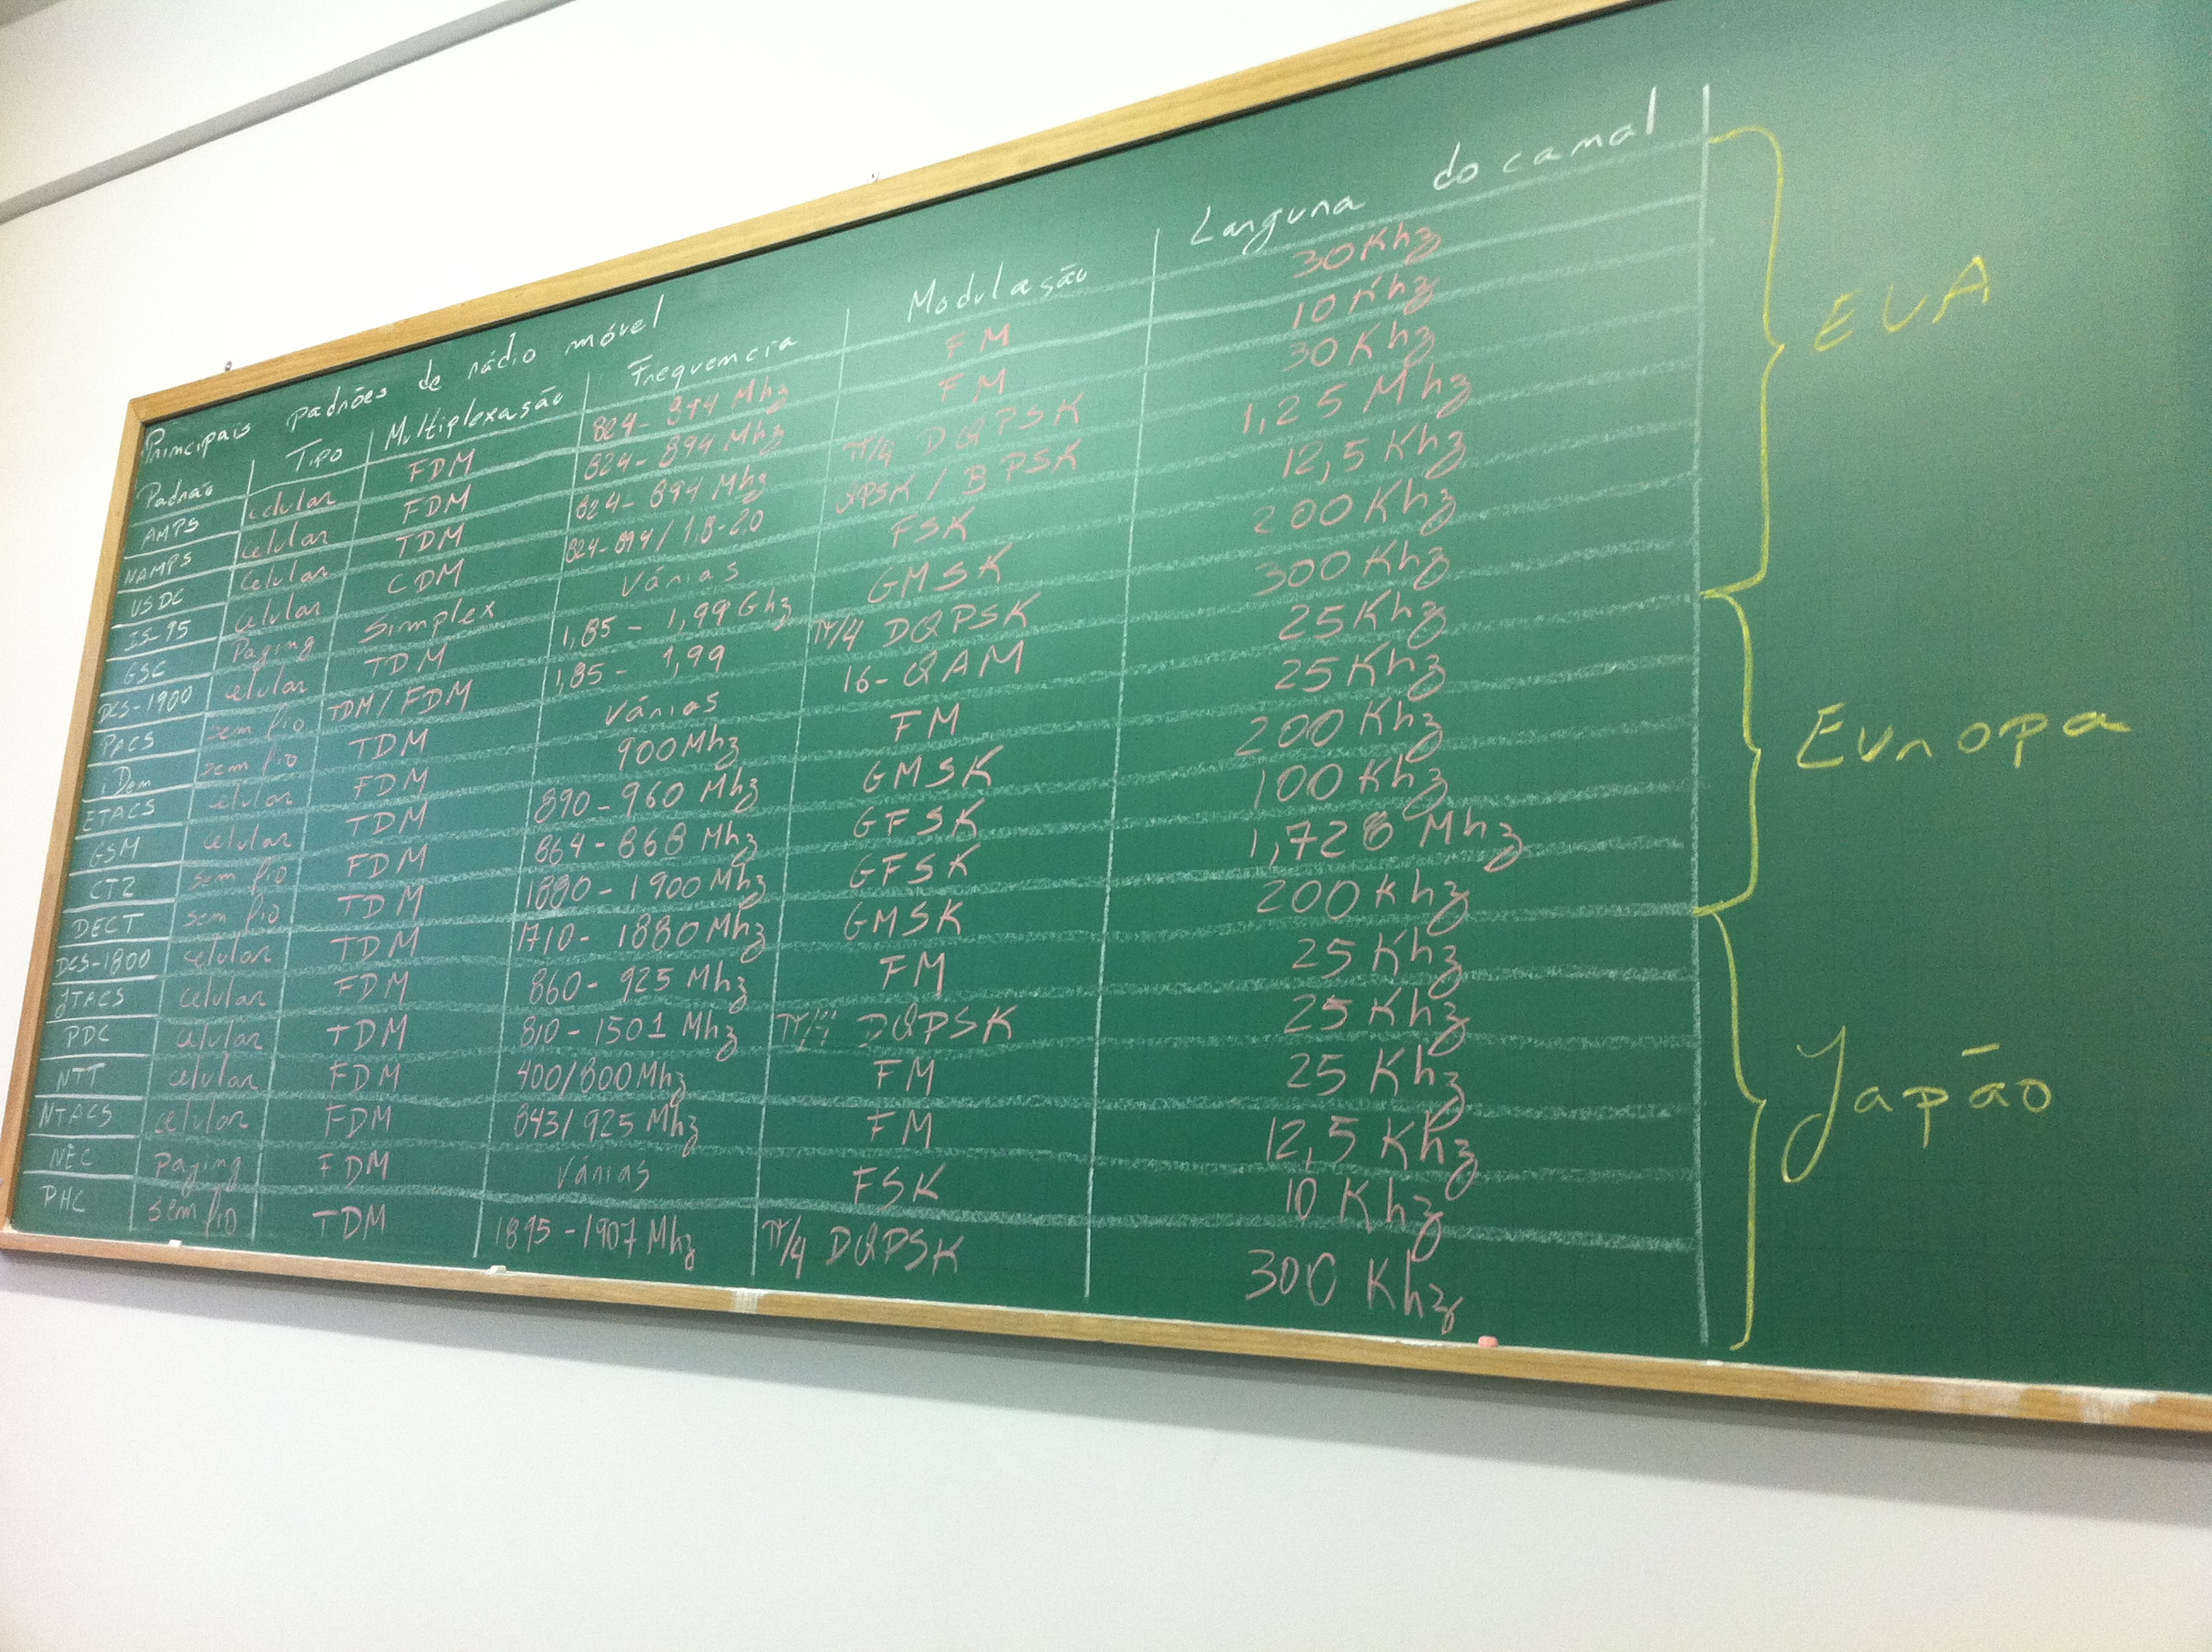 Principais padrões de rádio móvel
Padrão Tipo Multiplexação Frequencia Modulação Largura do canal
AMPS celular FDM 824-894 Mhz FM 30 Khz
NAMPS celular FDM 824-894 Mhz FM 10 Khz
USDC celular TDM 824-894 Mhz π/4 DQPSK 30 Khz
IS-95 celular CDM 824-894/1,8-2,0 QPSK/BPSK 1,25 Mhz
GSC Paging Simplex Várias FSK 12,5 Khz
DCS-1900 celular TDM 1,85-1,99 Ghz GMSK 200 Khz
PACS sem fio TDM/FDM 1,85-1,99 π/4 DQPSK 300 Khz
iDen sem fio TDM Várias 16-QAM 25 Khz
EUA
ETACS celular FDM 900 Mhz FM 25 Khz
GSM celular TDM 890-960 Mhz GMSK 200 Khz
CT2 sem fio FDM 864-868 Mhz GFSK 100 Khz
DECT sem fio TDM 1880-1900 Mhz GFSK 1,728 Mhz
DCS-1800 celular TDM 1710-1880 Mhz GMSK 200 Khz
Europa
JTACS celular FDM 860-925 Mhz FM 25 Khz
PDC celular TDM 810-1501 Mhz π/4 DQPSK 25 Khz
NTT celular FDM 400/800 Mhz FM 25 Khz
NTACS celular FDM 843/925 Mhz FM 12,5 Khz
NEC Paging FDM Várias FSK 10 Khz
PHC sem fio TDM 1895-1907 Mhz π/4 DQPSK 300 Khz
Japão